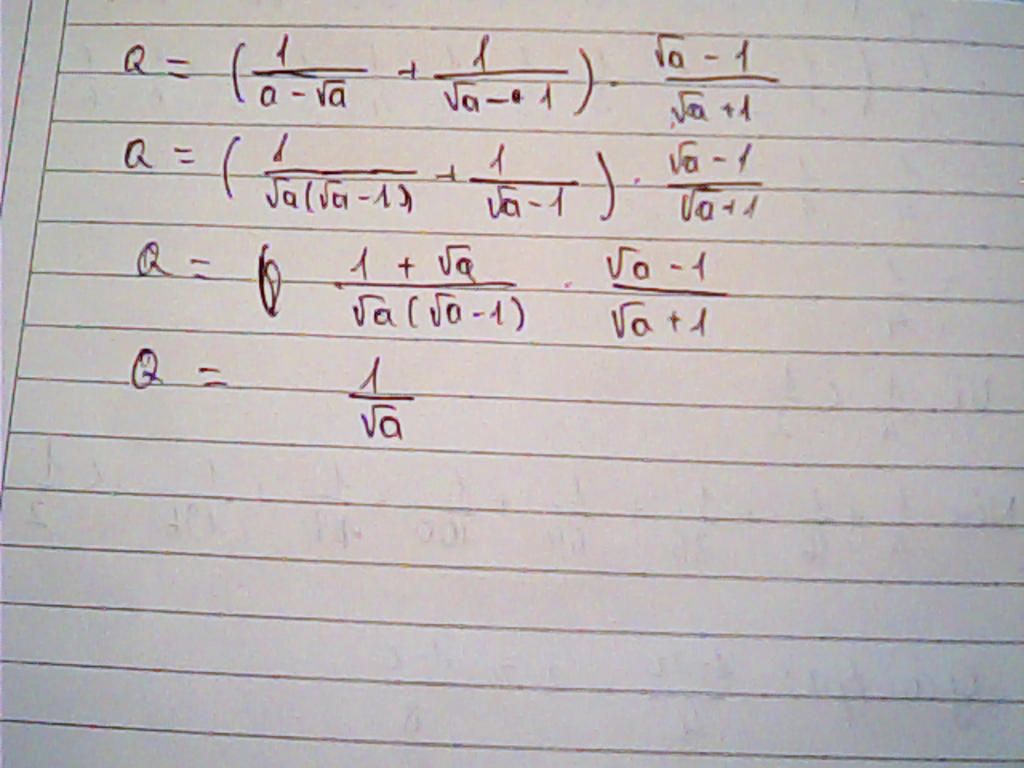 Q = ( 1/(a - √a) + 1/(√a - 1) ) · (√a - 1)/(√a + 1)
Q = ( 1/(√a(√a - 1)) + 1/(√a - 1) ) · (√a - 1)/(√a + 1)
Q = (1 + √a)/(√a(√a - 1)) · (√a - 1)/(√a + 1)
Q = 1/√a